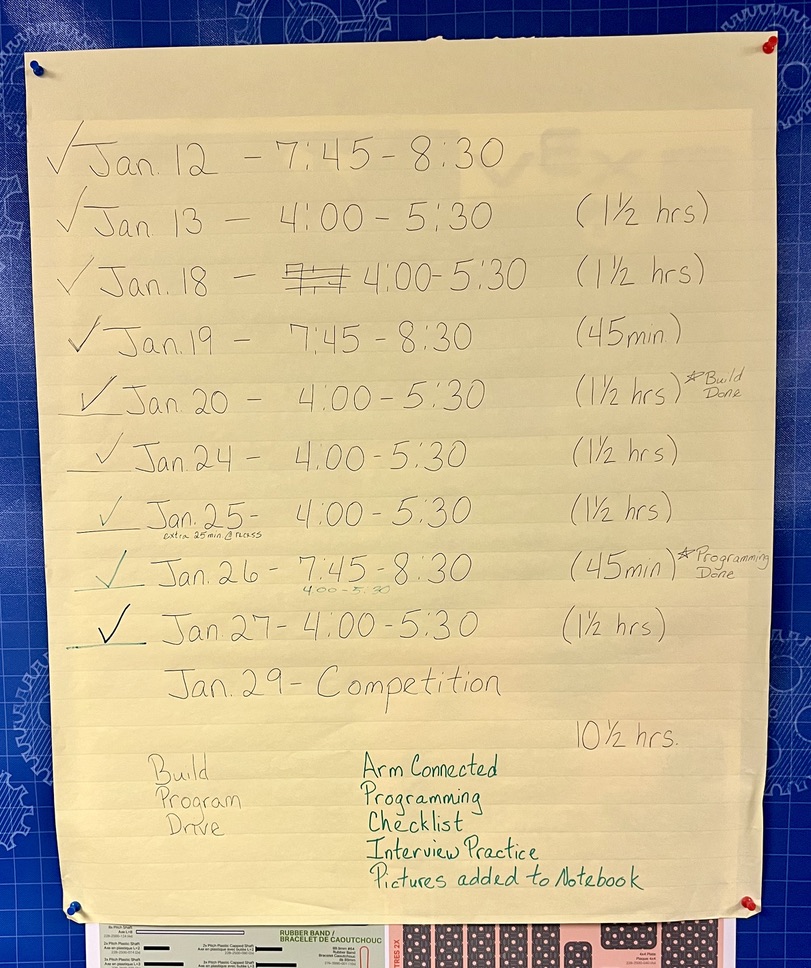 ✓ Jan. 12 - 7:45 - 8:30
✓ Jan 13 - 4:00 - 5:30 (1½ hrs)
✓ Jan. 18 - 4:00-5:30 (1½ hrs)
✓ Jan.19 - 7:45 - 8:30 (45min)
✓ Jan. 20 - 4:00 - 5:30 (1½ hrs) ☆ Build Done
✓ Jan.24 - 4:00 - 5:30 (1½ hrs)
✓ Jan. 25- 4:00 - 5:30 (1½ hrs)
extra 25 min. @ recess
✓ Jan. 26 - 7:45 - 8:30 (45min) ☆ Programming Done
4:00 - 5:30
✓ Jan 27- 4:00 - 5:30 (1½ hrs)
Jan. 29- Competition
10½ hrs.
Build
Program
Drive
Arm Connected
Programming
Checklist
Interview Practice
Pictures added to Notebook
RUBBER BAND /
BRACELET DE CAOUTCHOUC